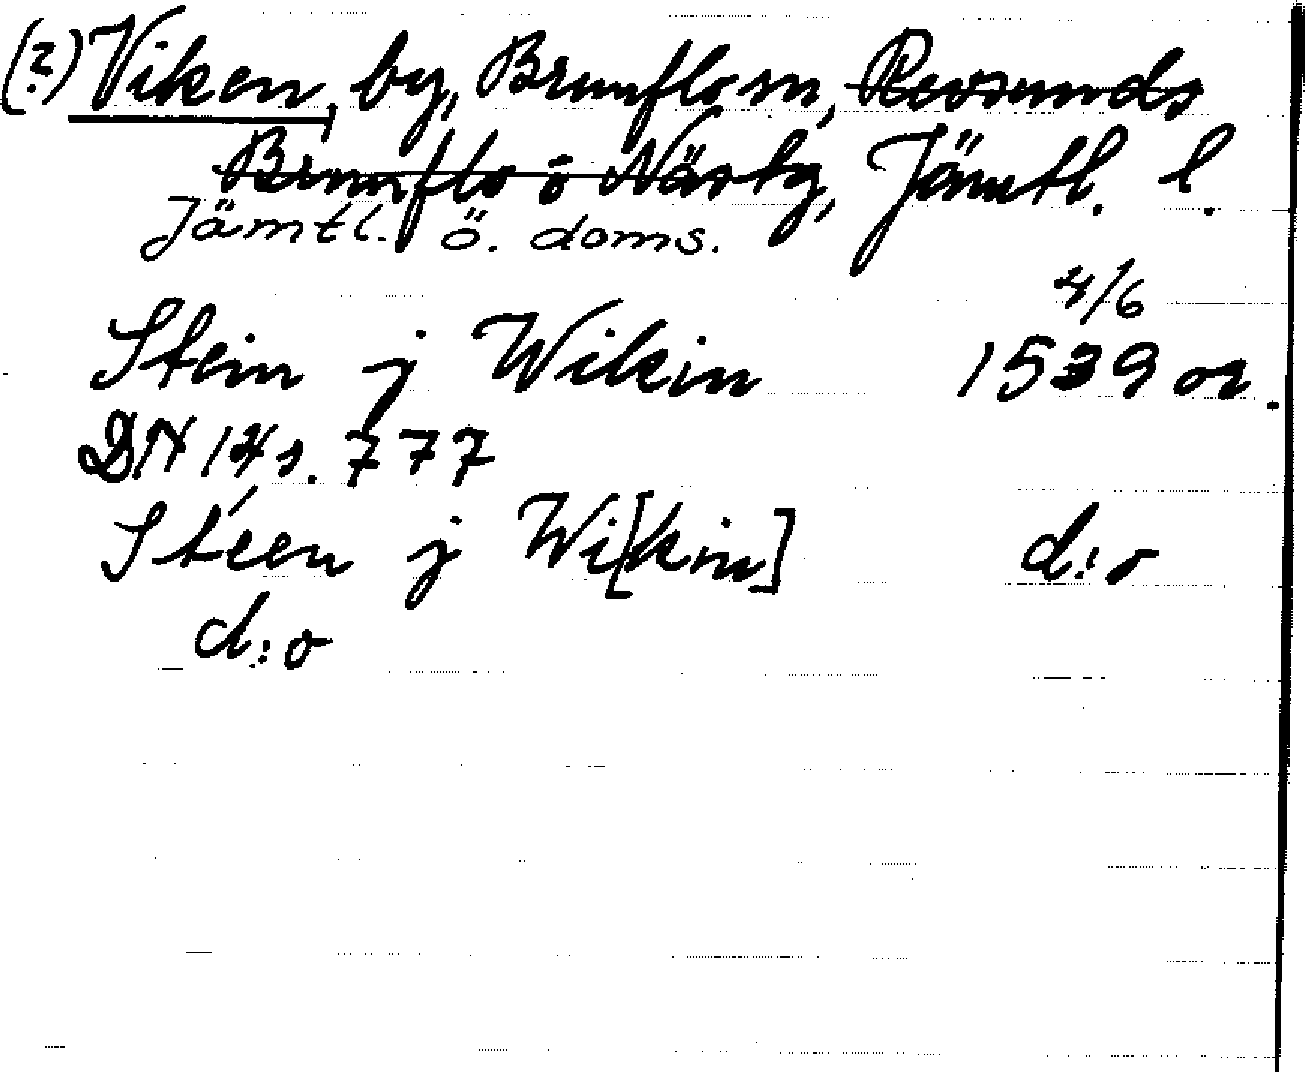 (?) Viken, by, Brunflo sn, Revsunds
Brunflo o Näsby, Jämtl. l.
Jämtl. ö. doms.
4/6
Stein j Wikin 1539 or.
DN 14 s. 777
Stéen j Wi[kin] d:o
d:o